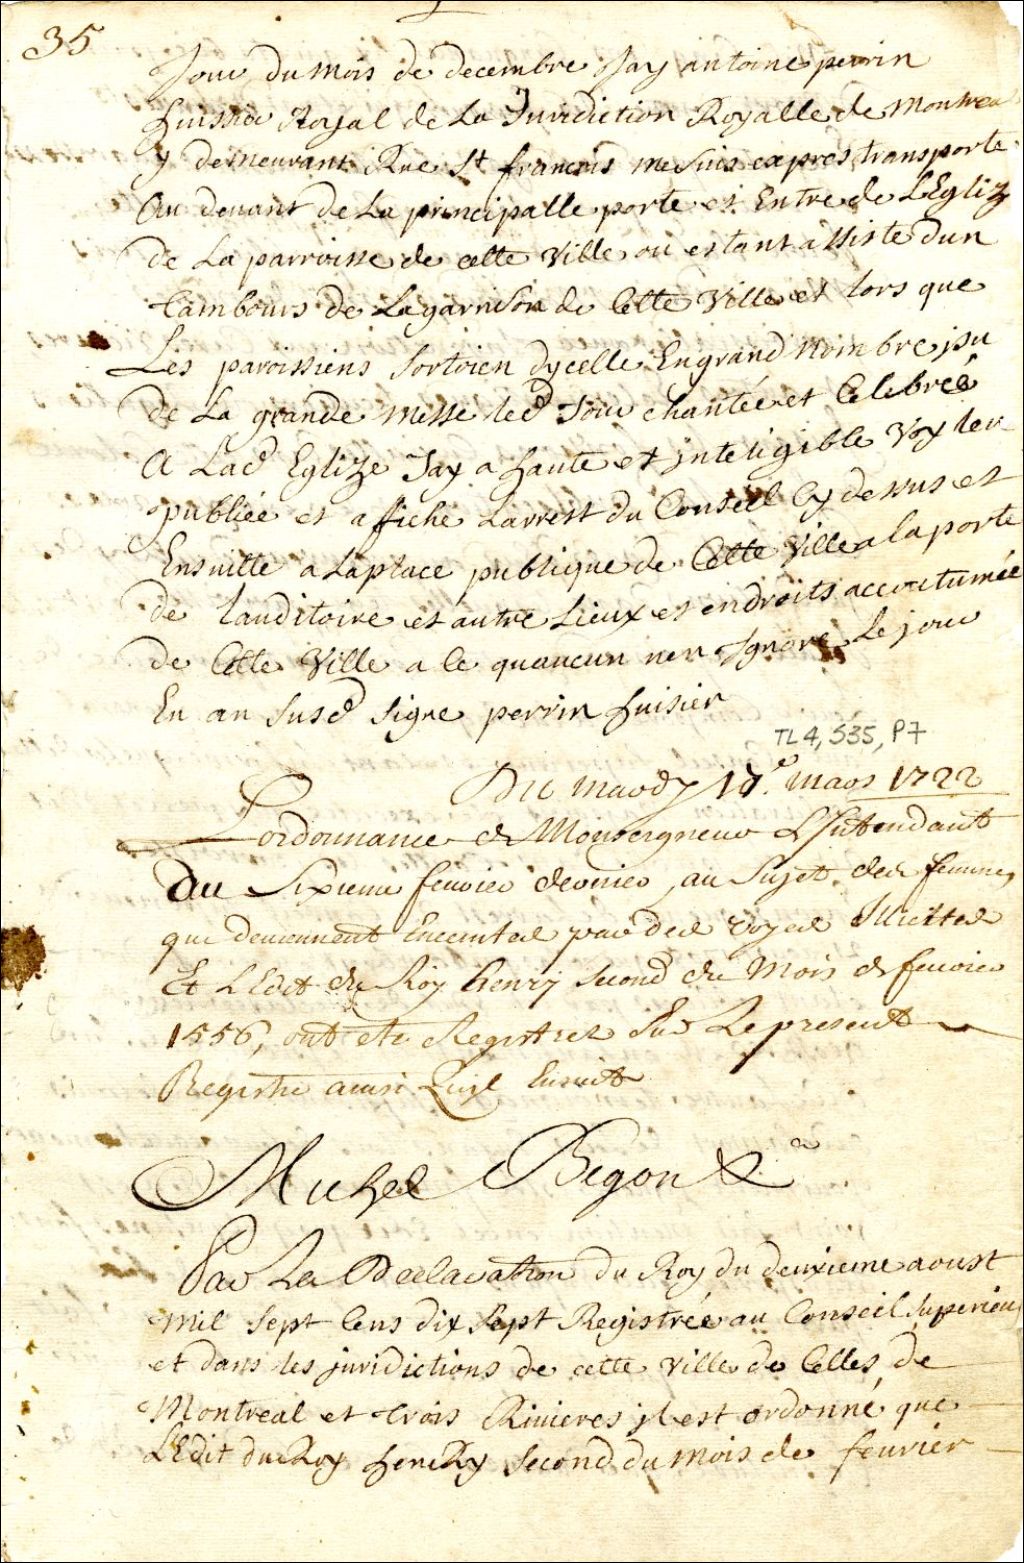 35
Jour du mois de decembre Jay antoine perrin
huissier Royal de La Juridiction Royalle de Montrea
y demeurant Rue St francois me suis expres transporte
Au devant de La principalle porte et Entre de L'Eglize
de La parroisse de cette Ville ou estant assiste dun
tambours de Lagarnison de Cette Ville et lors que
Les paroissiens sortoien dycelle En grand nombre jsu
de La grande messe led Jour chantée et Celebreé
A Lad Eglize Jay a haute et jnteligible voy leu
publiée et affiche Larrest du Conseil Cy dessus et
Ensuitte a Laplace publique de Cette Ville a la porte
de lauditoire et autre Lieux et endroits accoutumée
de Cette Ville a ce quaucun nen Ignore Le jour
En an susd signe perrin huisier
TL4, S35, P7
Du mardy 17e. mars 1722
Lordonnance de Monseigneur L'Jntendant
du Sixieme fevrier dernier, au sujet des femmes
qui deviennent Enceintes par des voyes Illicittes
Et L'Edit du Roy henry second du Mois de fevrier
1556, ont ete Registrez sur Le present
Registre ainsi Quil Ensuit
Michel Begon &a
Par La Declaration du Roy du deuxieme aoust
mil sept Cens dix sept Registrée au Conseil superieur
et dans les juridictions de cette ville de Celles de
Montreal et trois Rivieres jl est ordonné que
L'Edit du Roy henry second du mois de fevrier